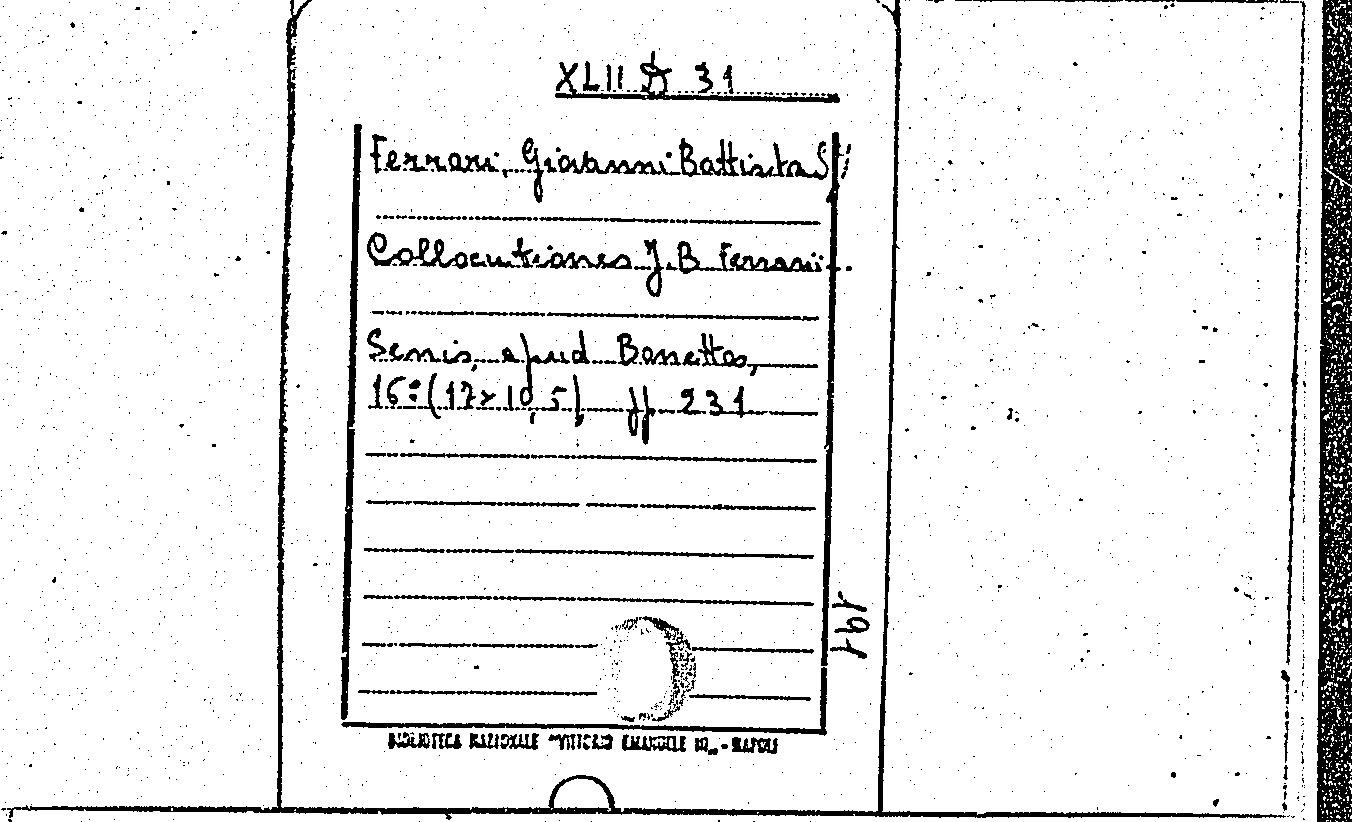 XLII D 31
Ferrari, Giovanni Battista S.J.
Collocutiones J. B. Ferrarii.
Senis, apud Bonettos,
16° (17×10,5), ff. 231
191
BIBLIOTECA NAZIONALE "VITTORIO EMANUELE III" - NAPOLI